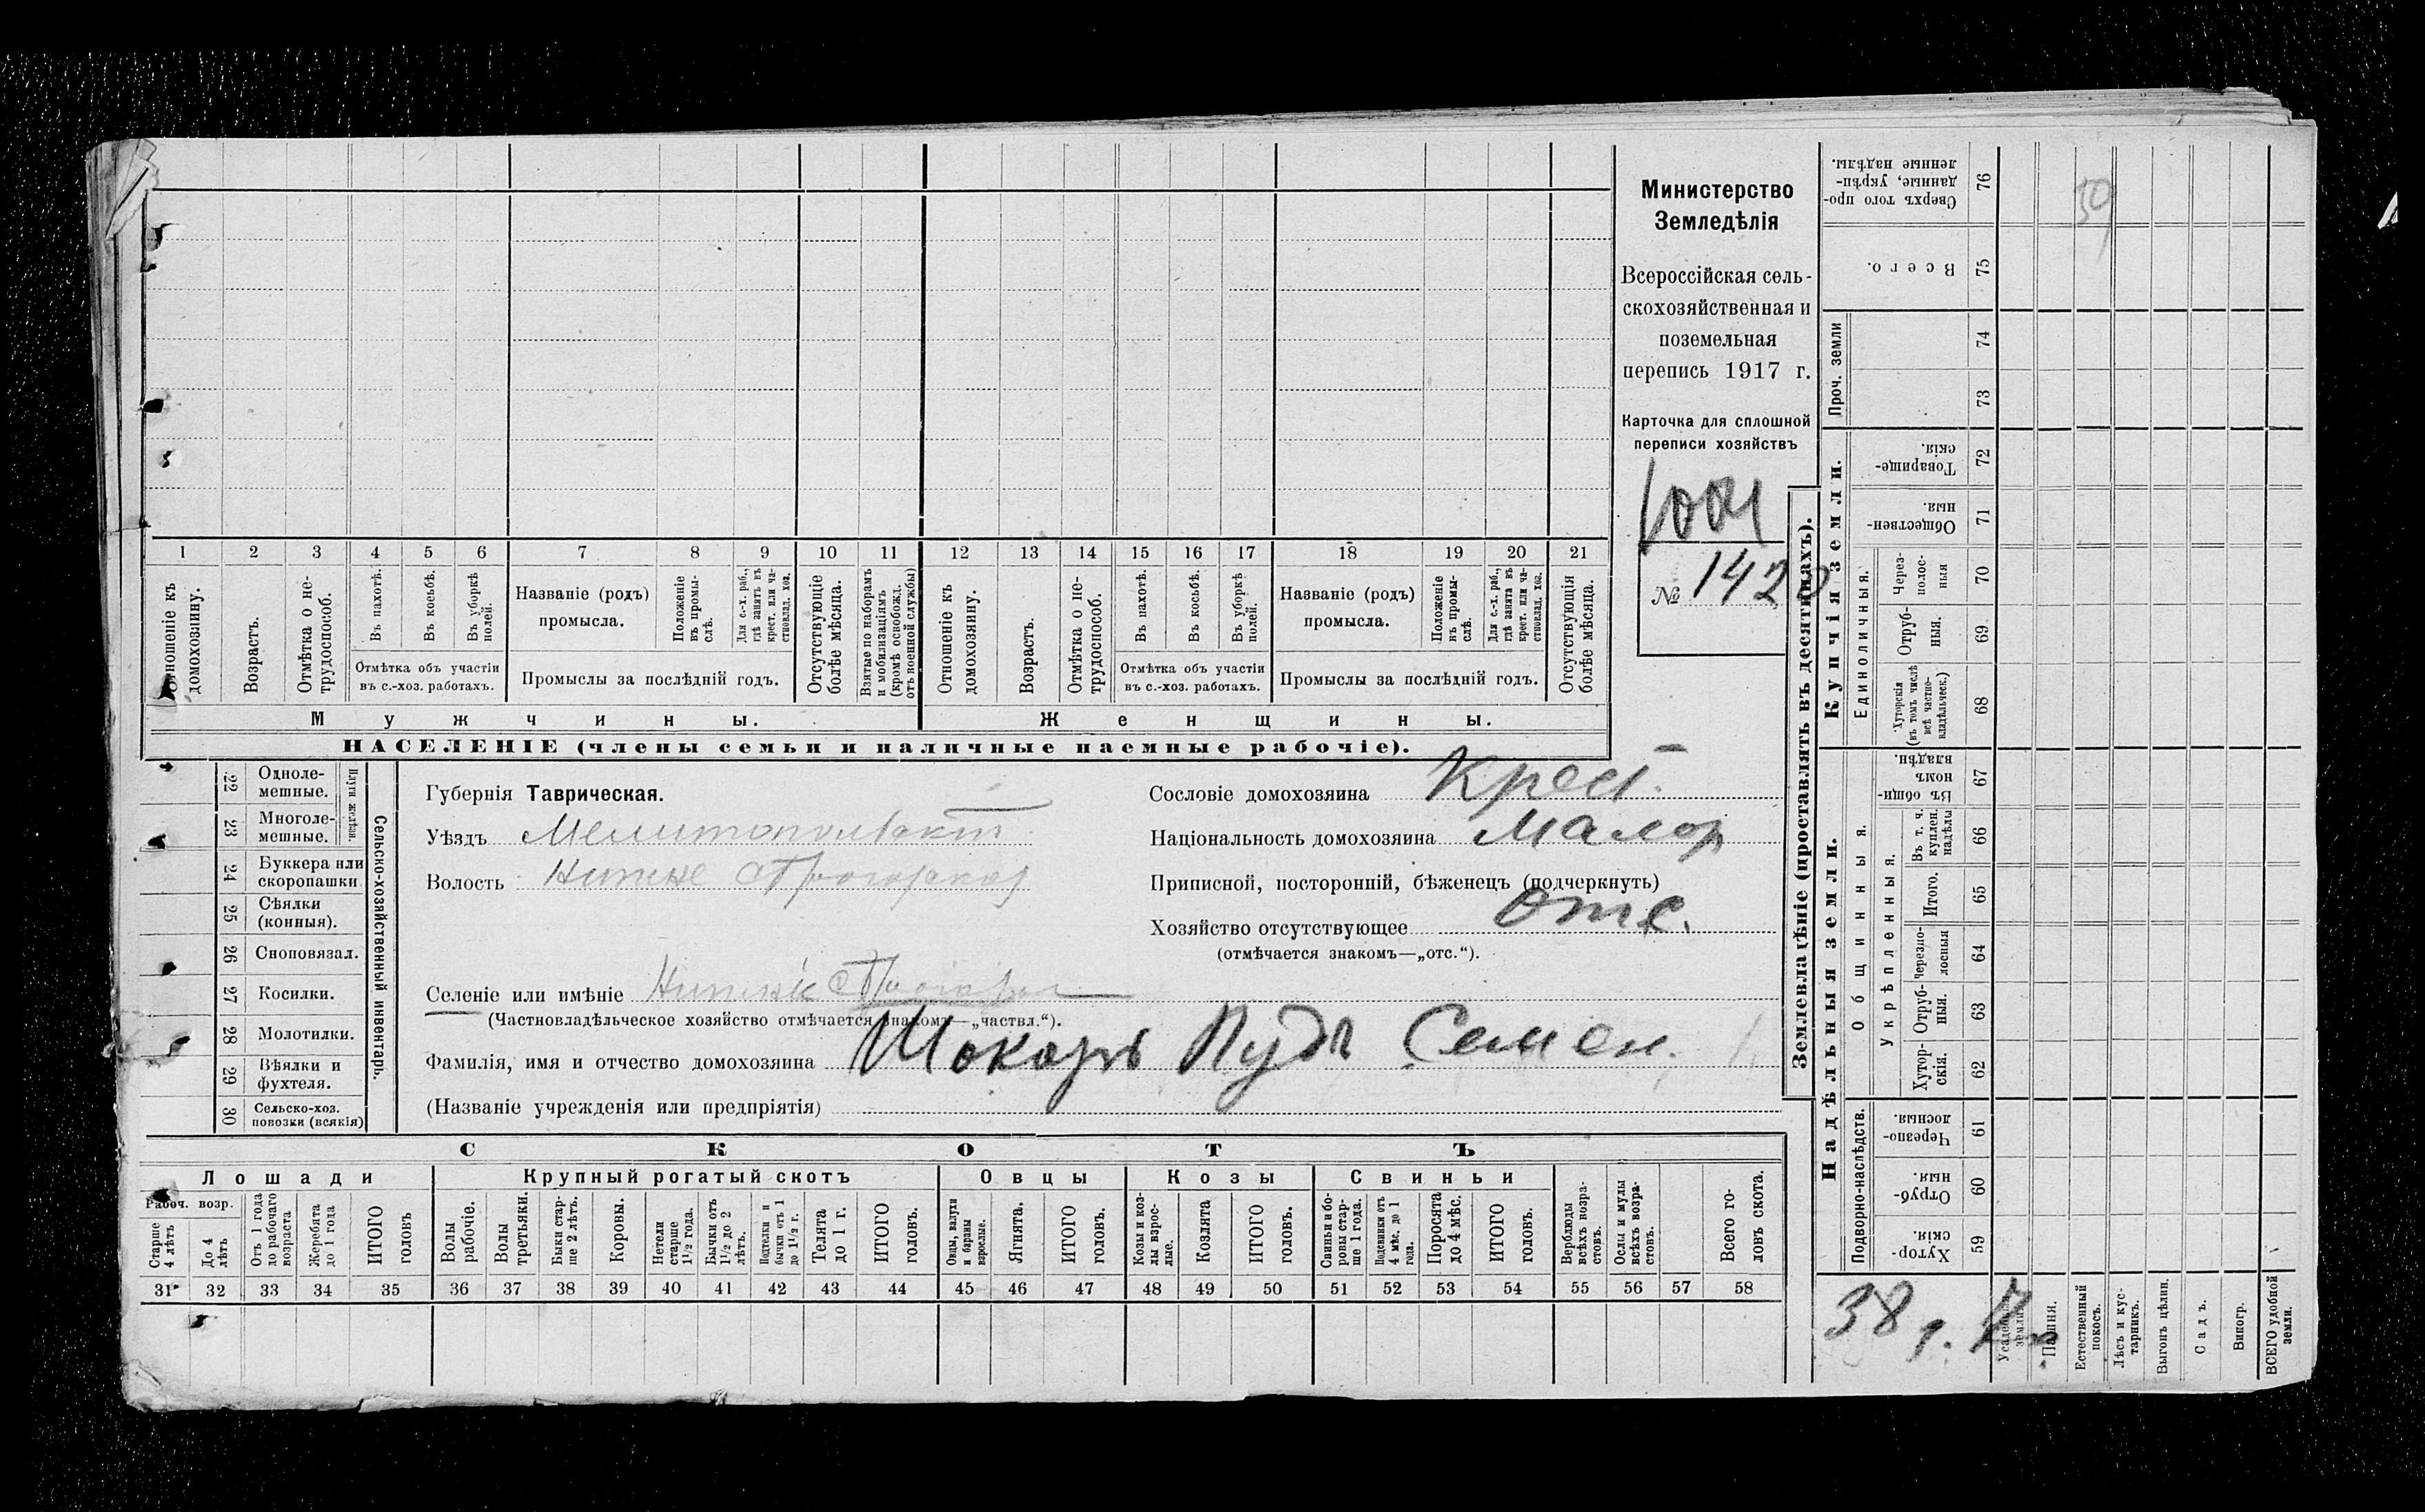 1 2 3 4 5 6 7 8 9 10 11 12 13 14 15 16 17 18 19 20 21
Отношеніе къ домохозяину.
Возрастъ.
Отмѣтка о не-
трудоспособ.
Въ пахотѣ.
Въ косьбѣ.
Въ уборкѣ
полей.
Отмѣтка объ участіи
въ с.-хоз. работахъ.
Названіе (родъ)
промысла.
Положеніе
въ промы-
слѣ.
Для с.-х. раб.,
гдѣ занятъ въ
крест. или ча-
стновлад. хоз.
Промыслы за послѣдній годъ.
Отсутствующіе
болѣе мѣсяца.
Взятые по наборамъ
и мобилизаціямъ
(кромѣ освобожд.
отъ военной службы)
Отношеніе къ
домохозяину.
Возрастъ.
Отмѣтка о не-
трудоспособ.
Въ пахотѣ.
Въ косьбѣ.
Въ уборкѣ
полей.
Отмѣтка объ участіи
въ с.-хоз. работахъ.
Названіе (родъ)
промысла.
Положеніе
въ промы-
слѣ.
Для с.-х. раб.,
гдѣ занята въ
крест. или ча-
стновлад. хоз.
Промыслы за послѣдній годъ.
Отсутствующія
болѣе мѣсяца.
Мужчины.
Женщины.
НАСЕЛЕНІЕ (члены семьи и наличные наемные рабочіе).
Министерство
Земледѣлія
Всероссійская сель-
скохозяйственная и
поземельная
перепись 1917 г.
Карточка для сплошной
переписи хозяйствъ
1001
№ 1420
22 Одноле-
мешные.
23 Многоле-
мешные.
Плуги желѣзн.
24 Буккера или
скоропашки
25 Сѣялки
(конныя).
26 Сноповязал.
27 Косилки.
28 Молотилки.
29 Вѣялки и
фухтеля.
30 Сельско-хоз.
повозки (всякія)
Сельско-хозяйственный инвентарь.
Губернія Таврическая.
Уѣздъ Мелитопольскій
Волость Нижне
Селеніе или имѣніе
(Частновладѣльческое хозяйство отмѣчается знакомъ—„частвл.“).
Фамилія, имя и отчество домохозяина Шокаръ Пудъ Семен.
(Названіе учрежденія или предпріятія)
Сословіе домохозяина Крест.
Національность домохозяина Малор
Приписной, посторонній, бѣженецъ (подчеркнуть)
Хозяйство отсутствующее Отс.
(отмѣчается знакомъ—„отс.“).
СКОТЪ
Лошади
Крупный рогатый скотъ
Овцы
Козы
Свиньи
Рабоч. возр.
Старше
4 лѣтъ
До 4
лѣтъ
Отъ 1 года
до рабочаго
возраста
Жеребята
до 1 года
ИТОГО
головъ
Волы
рабочіе.
Волы
третьяки.
Быки стар-
ше 2 лѣтъ.
Коровы.
Нетели
старше
1½ года.
Бычки отъ
1½ до 2
лѣтъ.
Подтелки и
бычки отъ 1
до 1½ г.
Телята
до 1 г.
ИТОГО
головъ.
Овцы, валухи
и бараны
взрослые.
Ягнята.
ИТОГО
головъ.
Козы и коз-
лы взрос-
лые.
Козлята
ИТОГО
головъ.
Свиньи и бо-
ровы стар-
ше 1 года.
Подсвинки отъ
4 мѣс. до 1
года.
Поросята
до 4 мѣс.
ИТОГО
головъ.
Верблюды
всѣхъ возра-
стовъ.
Ослы и мулы
всѣхъ возра-
стовъ.
Всего го-
ловъ скота.
31 32 33 34 35 36 37 38 39 40 41 42 43 44 45 46 47 48 49 50 51 52 53 54 55 56 57 58
Землевладѣніе (проставлять въ десятинахъ).
Надѣльныя земли.
Купчія земли.
Проч. земли
Подворно-наслѣдств.
Общинныя.
Укрѣпленныя.
Единоличныя.
Хутор-
скія.
59
Отруб-
ныя.
60
Черезпо-
лосныя
61
Хутор-
скія.
62
Отруб-
ныя.
63
Черезпо-
лосныя
64
Итого.
65
Въ т. ч.
куплен.
надѣлы
66
Въ общин-
номъ
владѣн.
67
Хуторскія
(въ томъ числѣ
всѣ частно-
владѣльческ.)
68
Отруб-
ныя.
69
Через-
полос-
ныя
70
Обществен-
ныя.
71
Товарище-
скія.
72
73
74
Всего.
75
Сверхъ того про-
данные, укрѣп-
ленные надѣлы.
76
50
38
Пашня.
Естественный
покосъ.
Лѣсъ и кус-
тарникъ.
Выгонъ цѣлин.
Садъ.
Виногр.
ВСЕГО удобной
земли.